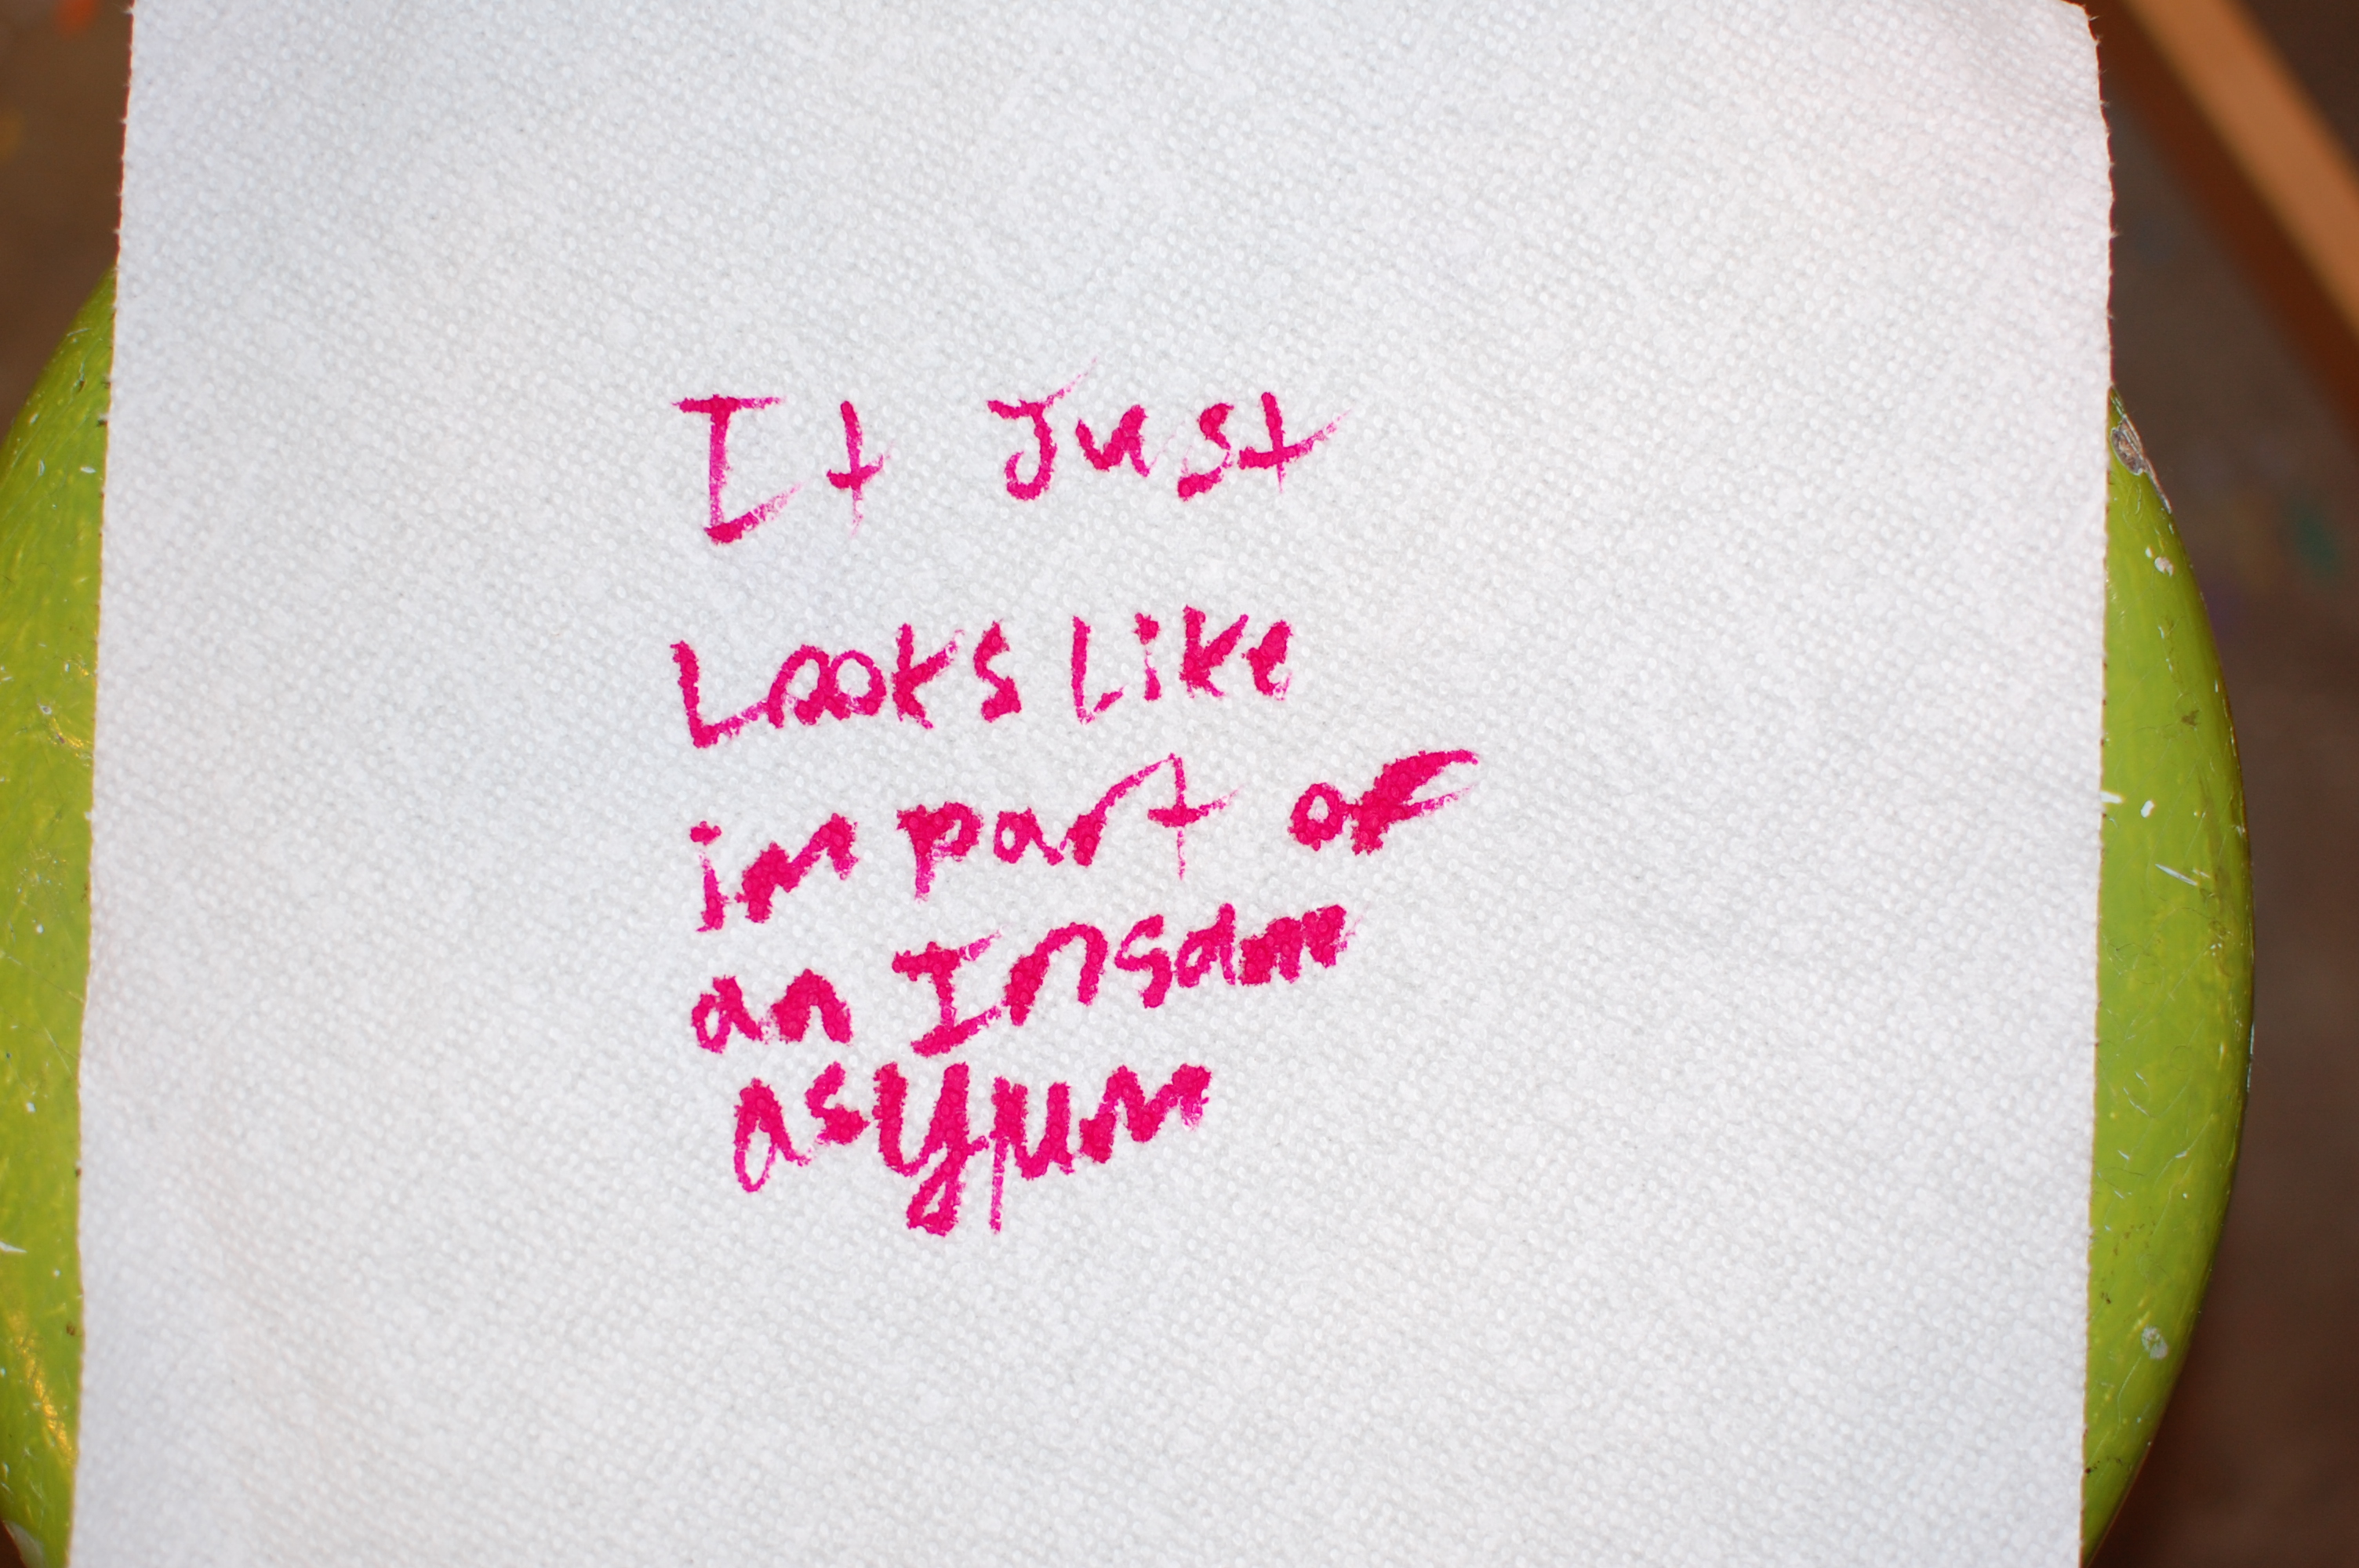 It Just
Looks Like
im part of
an Insane
asyum